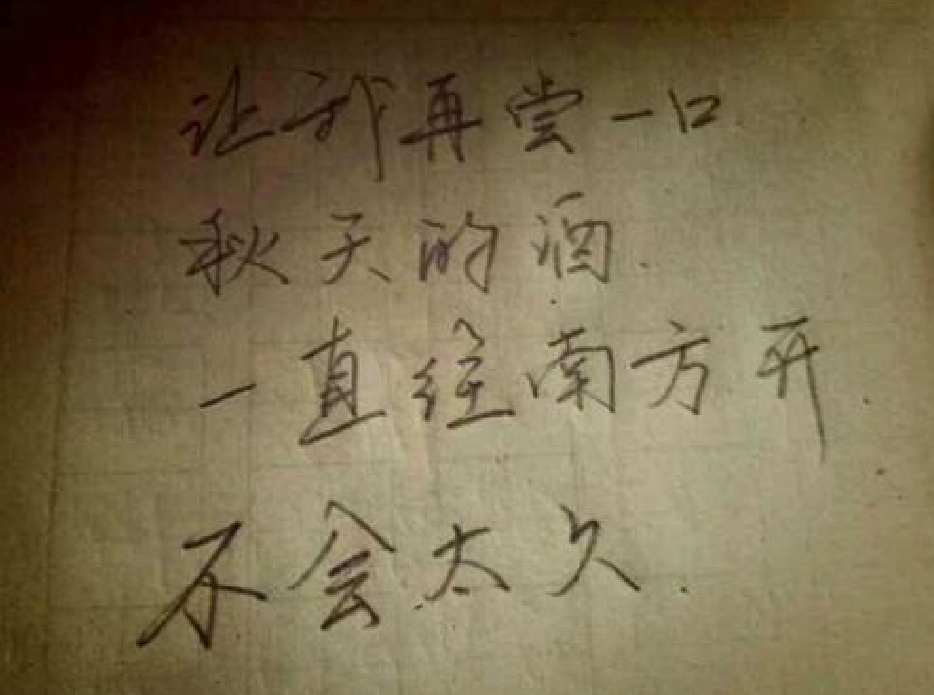 让我再尝一口
秋天的酒.
一直往南方开.
不会太久.